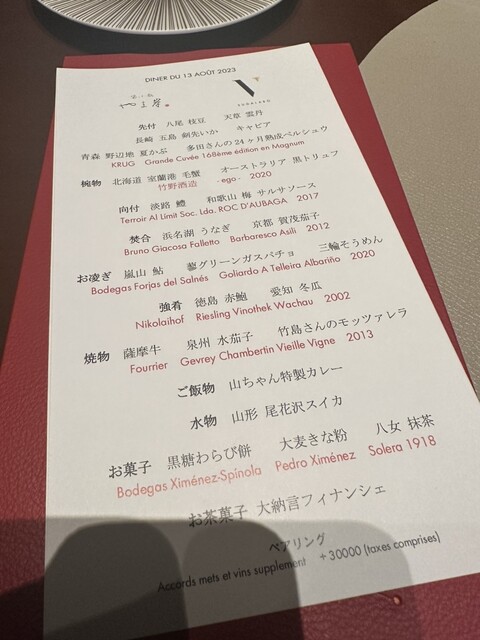 DINER DU 13 AOÛT 2023
やま岸
V
先付 八尾 枝豆 天草 雲丹
長崎 五島 剣先いか キャビア
青森 野辺地 夏かぶ 多田さんの24ヶ月熟成ペルシュウ
KRUG Grande Cuvée 168ème édition en Magnum
椀物 北海道 室蘭港 毛蟹 オーストラリア 黒トリュフ
竹野酒造 - ego - 2020
向付 淡路 鱧 和歌山 梅 サルサソース
Terroir Al Limit Soc. Lda. ROC D'AUBAGA 2017
焚合 浜名湖 うなぎ 京都 賀茂茄子
Bruno Giacosa Falletto Barbaresco Asili 2012
お凌ぎ 嵐山 鮎 蓼グリーンガスパチョ 三輪そうめん
Bodegas Forjas del Salnés Goliardo A Telleira Albariño 2020
強肴 徳島 赤鮑 愛知 冬瓜
Nikolaihof Riesling Vinothek Wachau 2002
焼物 薩摩牛 泉州 水茄子 竹島さんのモッツァレラ
Fourrier Gevrey Chambertin Vieille Vigne 2013
ご飯物 山ちゃん特製カレー
水物 山形 尾花沢スイカ
お菓子 黒糖わらび餅 大麦きな粉 八女 抹茶
Bodegas Ximénez-Spinola Pedro Ximénez Solera 1918
お茶菓子 大納言フィナンシェ
ペアリング
Accords mets et vins supplement +30000 (taxes comprises)